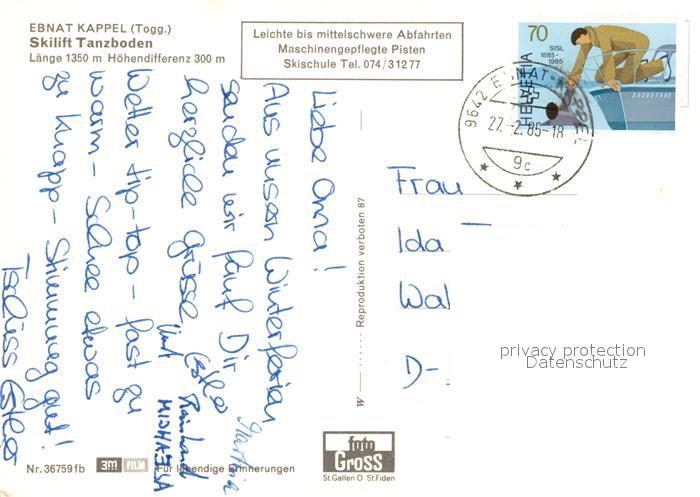 EBNAT KAPPEL (Togg.)
Skilift Tanzboden
Länge 1350 m Höhendifferenz 300 m
Leichte bis mittelschwere Abfahrten
Maschinengepflegte Pisten
Skischule Tel. 074/31277
70
SISL
1885-
1985
HELVETIA
SAUVETAGE
9642 EBNAT-KAPPEL
27.-2.85-18
9c
Liebe Oma!
Aus unsern Winterferien
senden wir fünf Dir
herzliche Grüsse
Wetter tip-top - fast zu
warm - Schnee etwas
zu knapp - Stimmung gut!
Tschüss Esther
Reinhard
MICHAELA
Frau
Ida
Wal
D-
privacy protection
Datenschutz
Reproduktion verboten 87
W
Nr. 36759fb
3M FILM
Für lebendige Erinnerungen
foto
Gross
St.Gallen O St.Fiden